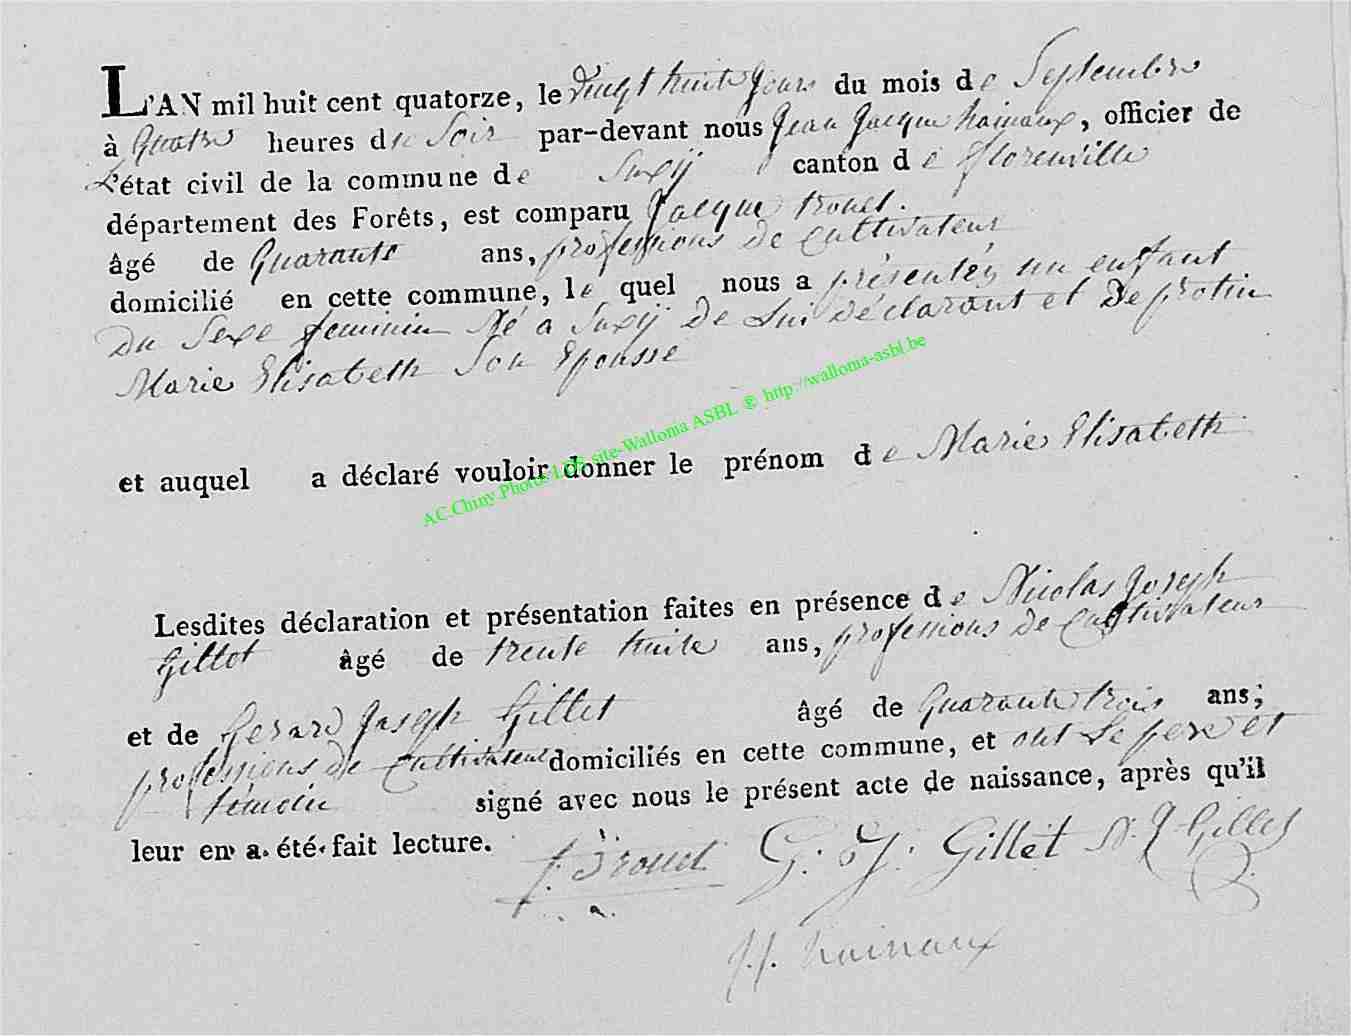 L'AN mil huit cent quatorze, le vingt huite jours du mois de Septembre
à quatre heures du Soir par-devant nous Jean Jacque hainaux, officier de
L'état civil de la commune de Suxÿ canton de florenville
département des Forêts, est comparu Jacque trouet.
âgé de Quarante ans, professions de cultivateur
domicilié en cette commune, le quel nous a présentéz un enfant
Du Sexe feminin Né a Suxÿ De Lui Déclarant et De protin
Marie Elisabeth Son Epousse
et auquel a déclaré vouloir donner le prénom de Marie Elisabeth
AC.Chiny.Photos LDR site-Wallonia ASBL ® http://wallonia-asbl.be
Lesdites déclaration et présentation faites en présence de Nicolas Joseph
Gillet âgé de trente huite ans, professions de Cultivateur
et de Gerard Joseph Gillet âgé de Quarante trois ans;
professions de Cultivateur domiciliés en cette commune, et ont Le pere et
témoin signé avec nous le présent acte de naissance, après qu'il
leur en a été fait lecture.
J. Trouet G: J: Gillet N. J Gillet
J.J. hainaux